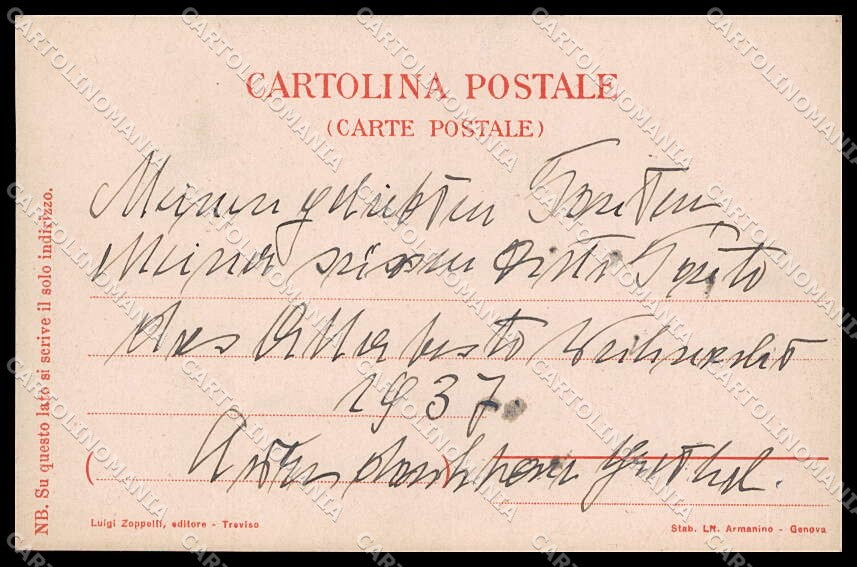 CARTOLINA POSTALE
(CARTE POSTALE)
Meinen geliebten Tanten
Meina
das Allerbeste Weihnacht
1937.
NB. Su questo lato si scrive il solo indirizzo.
Luigi Zoppelli, editore - Treviso
Stab. Lit. Armanino - Genova
CARTOLINOMANIA